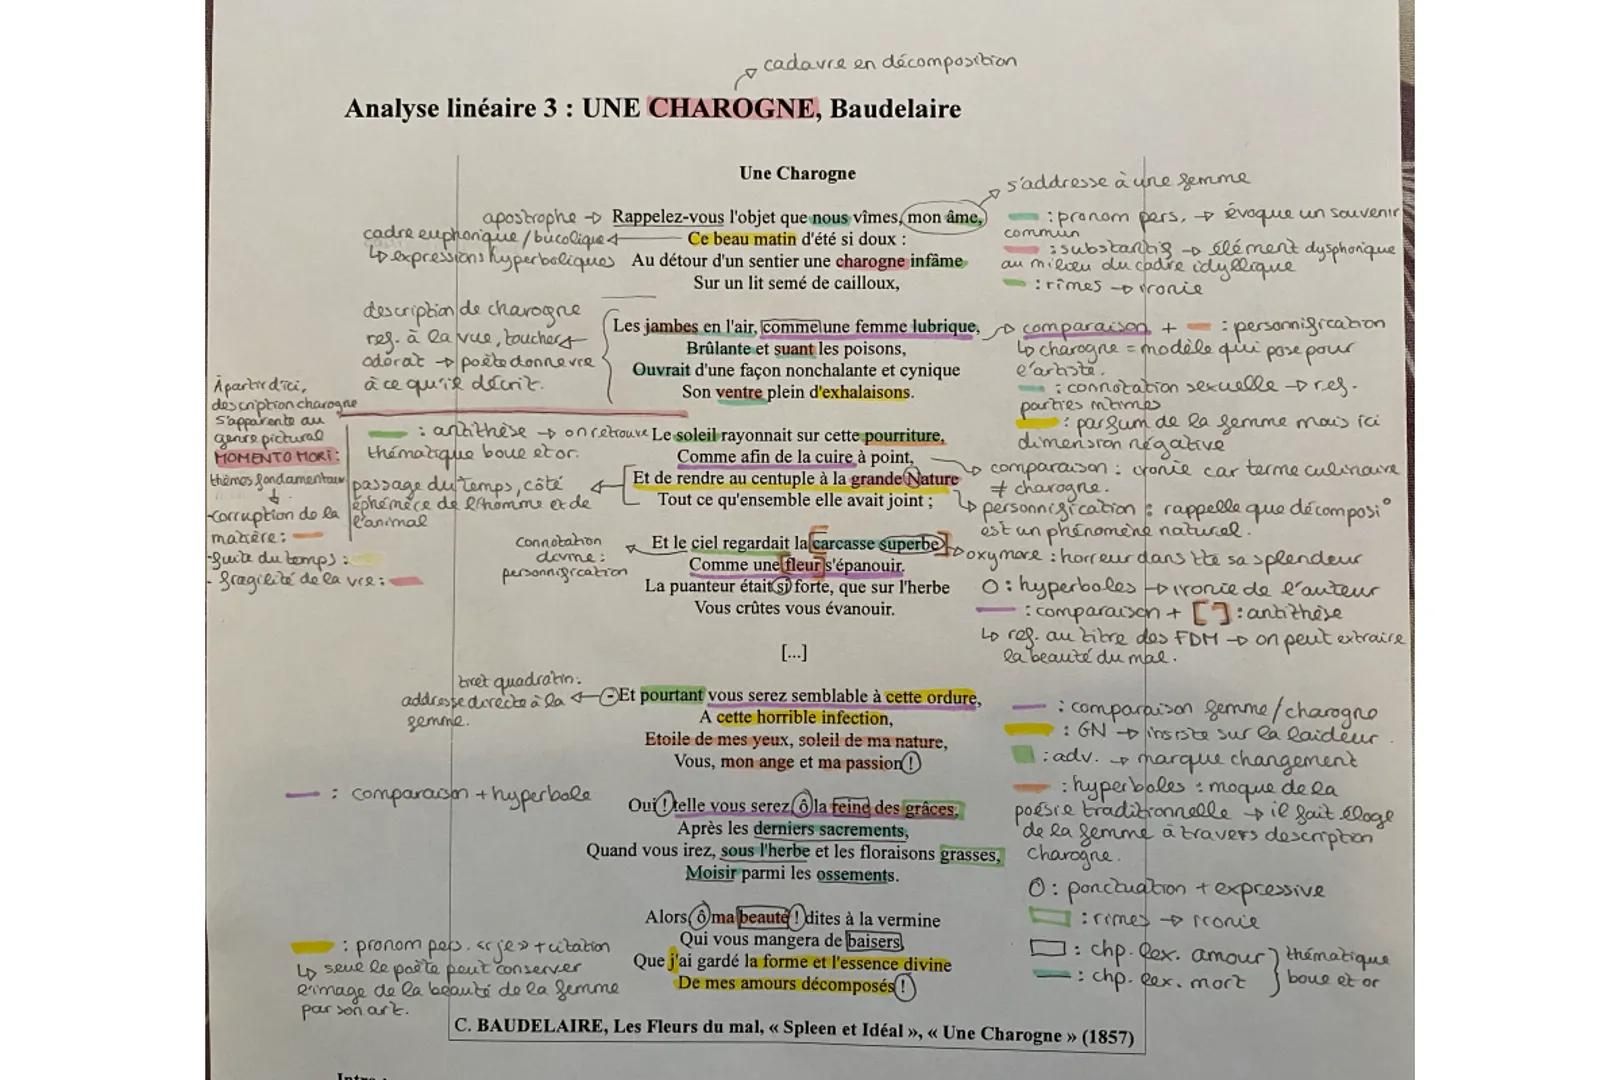 cadavre en décomposition
Analyse linéaire 3 : UNE CHAROGNE, Baudelaire
Une Charogne
s'addresse à une femme
apostrophe → Rappelez-vous l'objet que nous vîmes, mon âme,
: pronom pers. → évoque un souvenir
commun
cadre euphorique / bucolique ← Ce beau matin d'été si doux :
: substantif → élément dysphorique
au milieu du cadre idyllique
↳ expressions hyperboliques Au détour d'un sentier une charogne infâme
: rimes → ironie
Sur un lit semé de cailloux,
description de charogne
ref. à la vue, toucher
odorat → poète donne vie
à ce qu'il décrit.
Les jambes en l'air, comme une femme lubrique,
Brûlante et suant les poisons,
Ouvrait d'une façon nonchalante et cynique
Son ventre plein d'exhalaisons.
→ comparaison + : personnification
↳ charogne = modèle qui pose pour
l'artiste.
: connotation sexuelle → ref.
parties intimes
: parfum de la femme mais ici
dimension négative
À partir d'ici,
description charogne
s'apparente au
genre pictural
MOMENTO MORI :
thèmes fondamentaux
↓
- corruption de la
matière :
- fuite du temps :
- fragilité de la vie :
: antithèse → on retrouve
thématique boue et or.
Le soleil rayonnait sur cette pourriture,
Comme afin de la cuire à point,
Et de rendre au centuple à la grande Nature
Tout ce qu'ensemble elle avait joint ;
passage du temps, côté
éphémère de l'homme et de
l'animal
comparaison : ironie car terme culinaire
≠ charogne.
↳ personnification : rappelle que décomposi°
est un phénomène naturel.
connotation
divine :
personnification
Et le ciel regardait la carcasse superbe
Comme une fleur s'épanouir.
La puanteur était si forte, que sur l'herbe
Vous crûtes vous évanouir.
→ oxymore : horreur dans tte sa splendeur
O : hyperboles → ironie de l'auteur
: comparaison + [ ] : antithèse
↳ ref. au titre des FDM → on peut extraire
la beauté du mal.
[...]
tiret quadratin :
addresse directe à la
femme.
- Et pourtant vous serez semblable à cette ordure,
A cette horrible infection,
Etoile de mes yeux, soleil de ma nature,
Vous, mon ange et ma passion !
: comparaison femme/charogne
: GN → insiste sur la laideur
: adv. → marque changement
: hyperboles : moque de la
poésie traditionnelle → il fait éloge
de la femme à travers description
charogne.
: comparaison + hyperbole
Oui ! telle vous serez, ô la reine des grâces,
Après les derniers sacrements,
Quand vous irez, sous l'herbe et les floraisons grasses,
Moisir parmi les ossements.
O : ponctuation + expressive
: rimes → ironie
: chp. lex. amour
: chp. lex. mort
thématique
boue et or
Alors, ô ma beauté ! dites à la vermine
Qui vous mangera de baisers,
Que j'ai gardé la forme et l'essence divine
De mes amours décomposés !
: pronom pers. « je » + citation
↳ seul le poète peut conserver
l'image de la beauté de la femme
par son art.
C. BAUDELAIRE, Les Fleurs du mal, « Spleen et Idéal », « Une Charogne » (1857)
Intro :